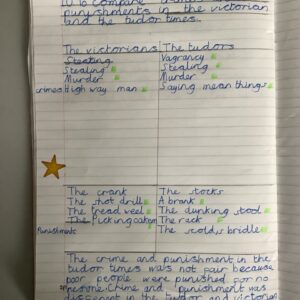 LO To compare
punishments in the victorian
and the tudor times.
The victorians The tudors
Stealing Vagrancy
Stealing Stealing
Murder Murder
crimes High way man Saying mean things
The crank The stocks
The shot drill A brank
The tread weel The dunking stool
The Picking oakem The rack
Punishments The scolds bridle
The crime and punishment in the
tudor times was not fair because
poor people were punished for no
crime and punishment was
different in the tudor and victorian